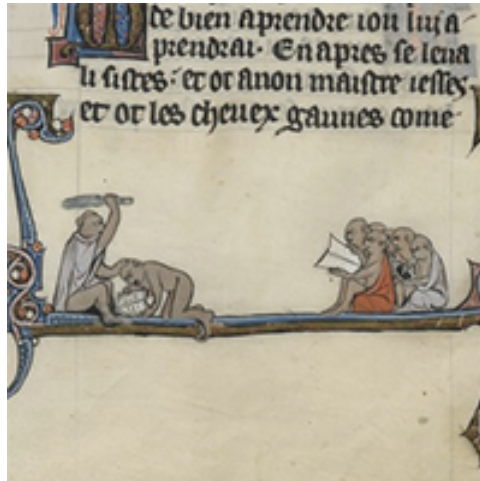 de bien aprendre iou lui a
prendrai. En apres se leua
li sistes: et ot anon maistre iesses.
et ot les cheuex gaunes come